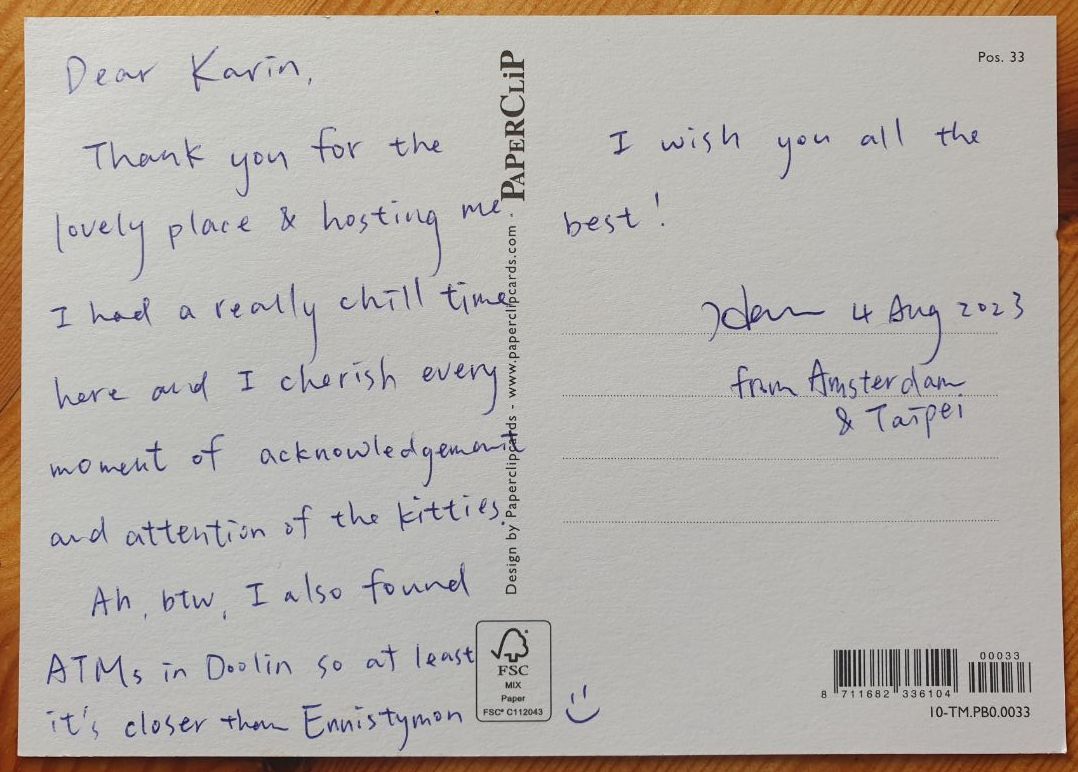 Dear Karin,
Thank you for the
lovely place & hosting me.
I had a really chill time
here and I cherish every
moment of acknowledgement
and attention of the kitties.
Ah, btw, I also found
ATMs in Doolin so at least
it's closer than Ennistymon
:)
PAPERCLiP
Design by Paperclipcards - www.paperclipcards.com -
FSC
MIX
Paper
FSC® C112043
Pos. 33
I wish you all the
best!
4 Aug 2023
from Amsterdam
& Taipei
00033
8 711682 336104
10-TM.PB0.0033